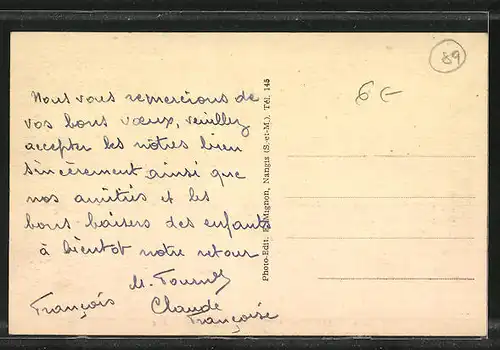 Nous vous remercions de
vos bons vœux, veuillez
accepter les nôtres bien
sincèrement ainsi que
nos amitiés et les
bons baisers des enfants
à bientôt notre retour
M.
François Claude
Françoise
Photo-Edit. Mignon, Nangis (S.-et-M.). Tél. 145
89
6€